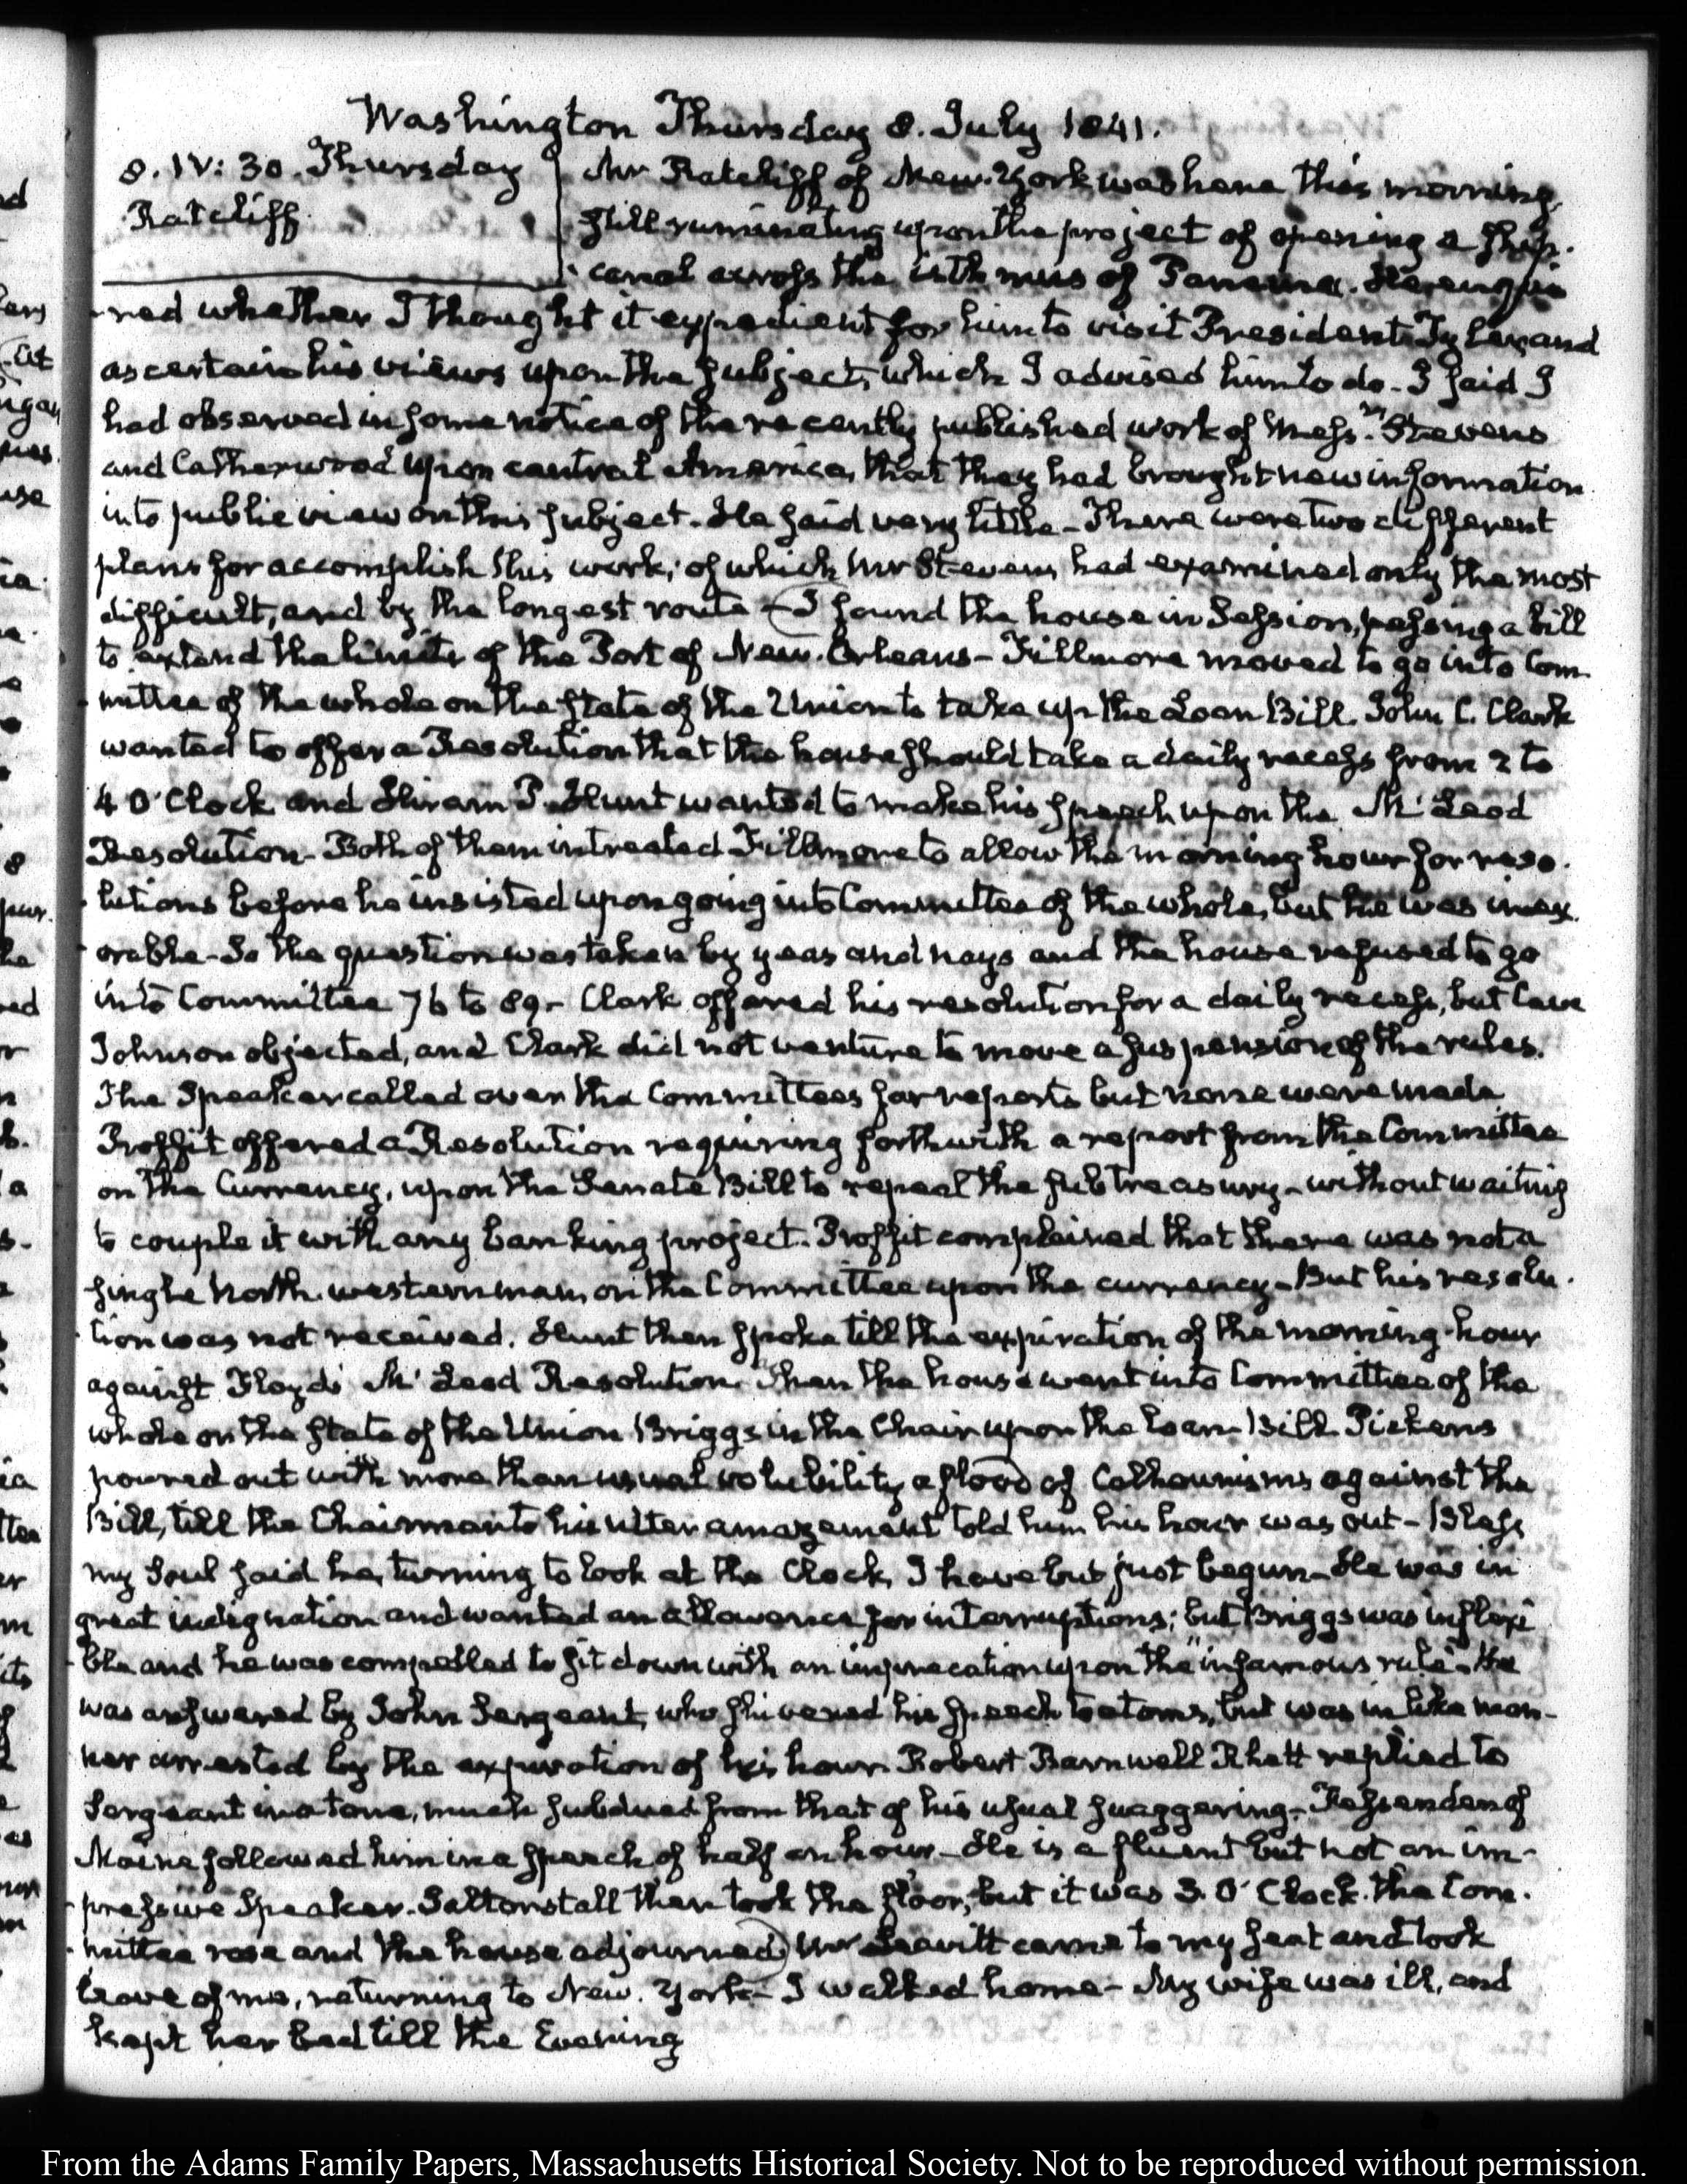 Washington Thursday 8. July 1841.
8. IV: 30. Thursday
Ratcliff
Mr Ratcliff of New-York was here this morning,
still ruminating upon the project of opening a ship-
canal across the isthmus of Panama. He enqui-
red whether I thought it expedient for him to visit President Tyler and
ascertain his views upon the subject, which I advised him to do- I said I
had observed in some notice of the recently published work of Mess.rs Stevens
and Catherwood upon central America, that they had brought new information
into public view on this subject. He said very little- There were two different
plans for accomplish this work; of which Mr Stevens had examined only the most
difficult, and by the longest route- I found the house in Session, passing a bill
to extend the limits of the Port of New-Orleans- Fillmore moved to go into Com-
mittee of the whole on the state of the Union to take up the Loan Bill. John C. Clark
wanted to offer a Resolution that the house should take a daily recess from 2 to
4 O'Clock and Hiram P. Hunt wanted to make his speech upon the Mc Leod
Resolution- Both of them intreated Fillmore to allow the morning hour for reso-
lutions before he insisted upon going into Committee of the whole, but he was inex-
orable- So the question was taken by yeas and nays and the house refused to go
into Committee 76 to 89- Clark offered his resolution for a daily recess, but Cave
Johnson objected, and Clark did not venture to move a suspension of the rules.
The Speaker called over the Committees for reports but none were made
Proffit offered a Resolution requiring forthwith a report from the Committee
on the Currency, upon the Senate Bill to repeal the subtreasury- without waiting
to couple it with any banking project. Proffit complained that there was not a
single North-western man, on the Committee upon the currency- But his resolu-
tion was not received. Hunt then spoke till the expiration of the morning-hour
against Floyd's Mc Leod Resolution. Then the house went into Committee of the
whole on the state of the Union Briggs in the Chair upon the Loan-Bill. Pickens
poured out with more than usual volubility a flood of Calhounisms against the
Bill, till the Chairman to his utter amazement told him his hour was out- Bless
my Soul said he, turning to look at the Clock, I have but just begun- He was in
great indignation and wanted an allowance for interruptions; but Briggs was inflexi-
ble and he was compelled to sit down with an imprecation upon the "infamous rule"- He
was answered by John Sergeant, who shivered his speech to atoms, but was in like man-
ner arrested by the expiration of his hour. Robert Barnwell Rhett replied to
Sergeant in a tone, much subdued from that of his usual swaggering- Fessenden of
Maine followed him in a speech of half an hour- He is a fluent but not an im-
pressive Speaker. Saltonstall then took the floor; but it was 3. O'Clock. the Com-
mittee rose and the house adjourned Mr Leavitt came to my seat and took
leave of me, returning to New-York- I walked home- My wife was ill, and
kept her bed till the Evening
From the Adams Family Papers, Massachusetts Historical Society. Not to be reproduced without permission.